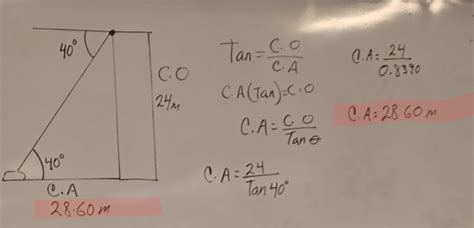 40°
C.O
24m
40°
C.A
28.60 m
Tan = C.O / C.A
C.A(Tan)=C.O
C.A = C.O / Tan θ
C.A = 24 / Tan 40°
C.A = 24 / 0.8390
C.A = 28.60 m